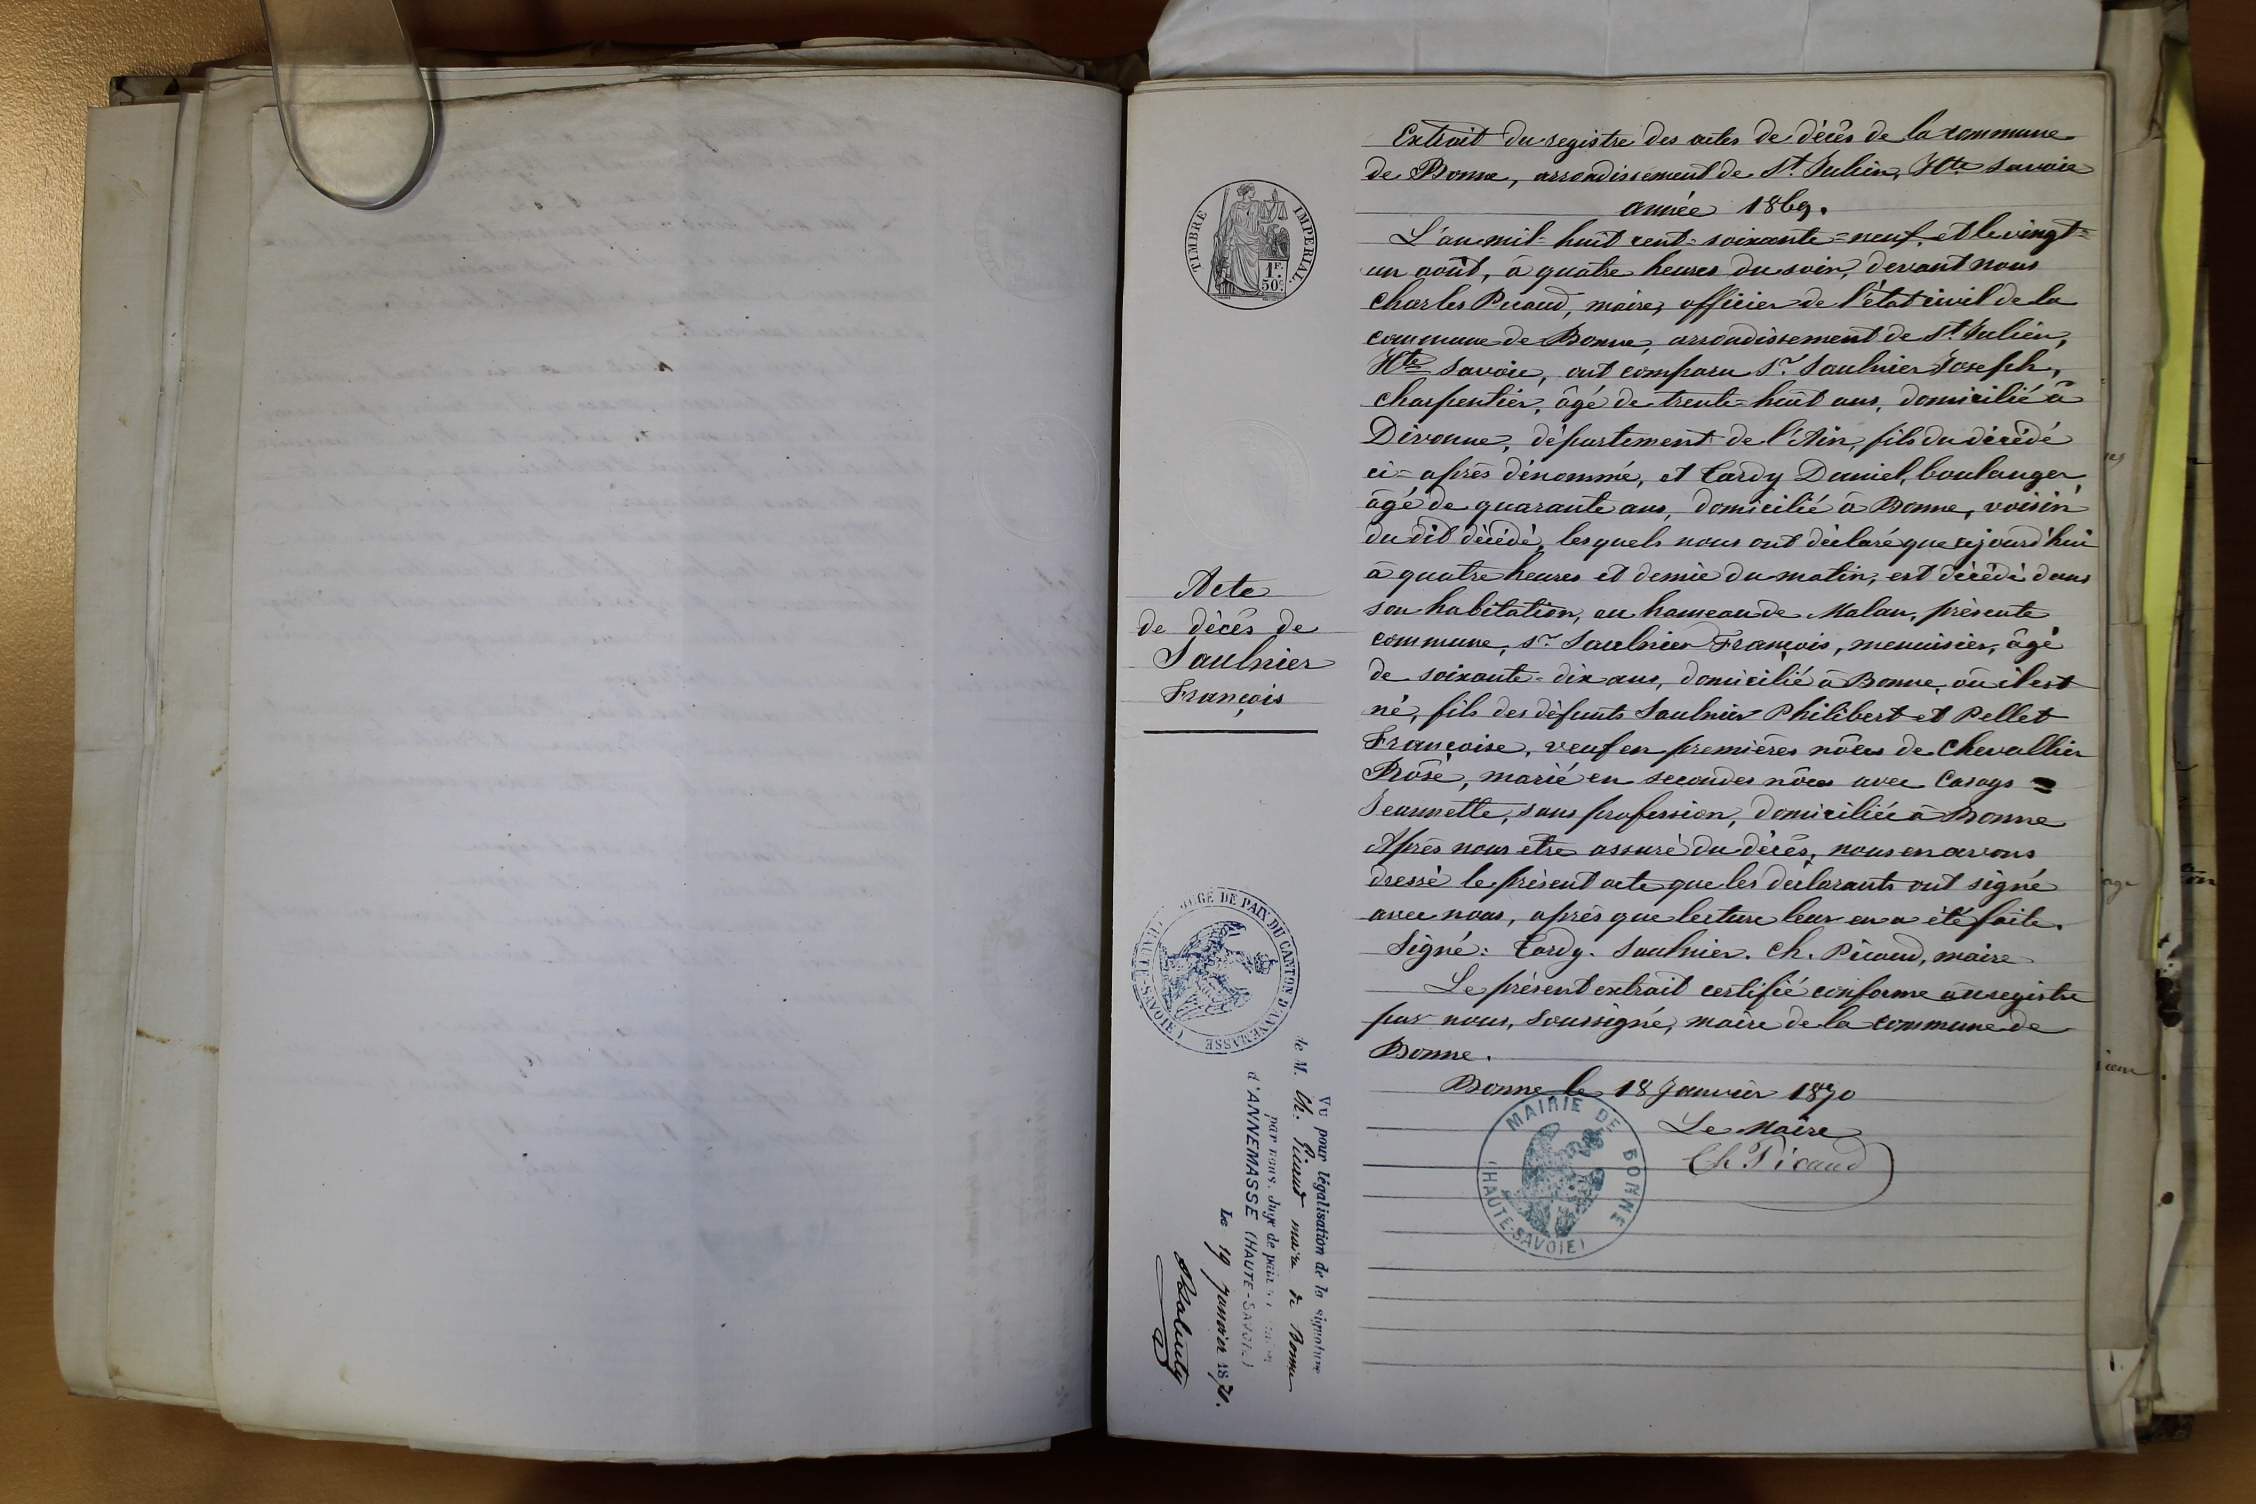 Extrait du registre des actes de décès de la commune
de Bonne, arrondissement de St. Julien, Hte Savoie
année 1869.
L'an mil-huit cent-soixante-neuf, et le vingt-
un août, à quatre heures du soir, devant nous
Charles Picaud, maire, officier de l'état civil de la
commune de Bonne, arrondissement de St. Julien,
Hte Savoie, ont comparu Sr. Saulnier Joseph,
charpentier, âgé de trente-huit ans, domicilié à
Divonne, département de l'Ain, fils du décédé
ci-après dénommé, et Tardy Daniel, boulanger,
âgé de quarante ans, domicilié à Bonne, voisin
du dit décédé, lesquels nous ont déclaré que cejourd'hui
à quatre heures et demie du matin, est décédé dans
son habitation, au hameau de Malan, présente
commune, Sr. Saulnier François, menuisier, âgé
de soixante-dix ans, domicilié à Bonne, où il est
né, fils des défunts Saulnier Philibert et Pellet
Françoise, veuf en premières nôces de Chevallier
Rose, marié en secondes nôces avec Casays
Jeannette, sans profession, domiciliée à Bonne
Après nous être assuré du décès, nous en avons
dressé le présent acte que les déclarants ont signé
avec nous, après que lecture leur en a été faite.
Signé: Tardy. Saulnier. Ch. Picaud, maire
Le présent extrait certifié conforme au registre
par nous, soussigné, maire de la commune de
Bonne.
Bonne le 18 Janvier 1870
Le Maire
Ch Picaud
MAIRIE DE BONNE
(HAUTE-SAVOIE)
TIMBRE IMPERIAL
1F.
50c.
Acte
de décès de
Saulnier
François
JUGE DE PAIX DU CANTON D'ANNEMASSE
(HAUTE-SAVOIE)
Vu pour légalisation de la signature
de M. Ch. Picaud maire de Bonne
par nous, Juge de paix
d'ANNEMASSE (HAUTE-SAVOIE)
Le 19 Janvier 1870.